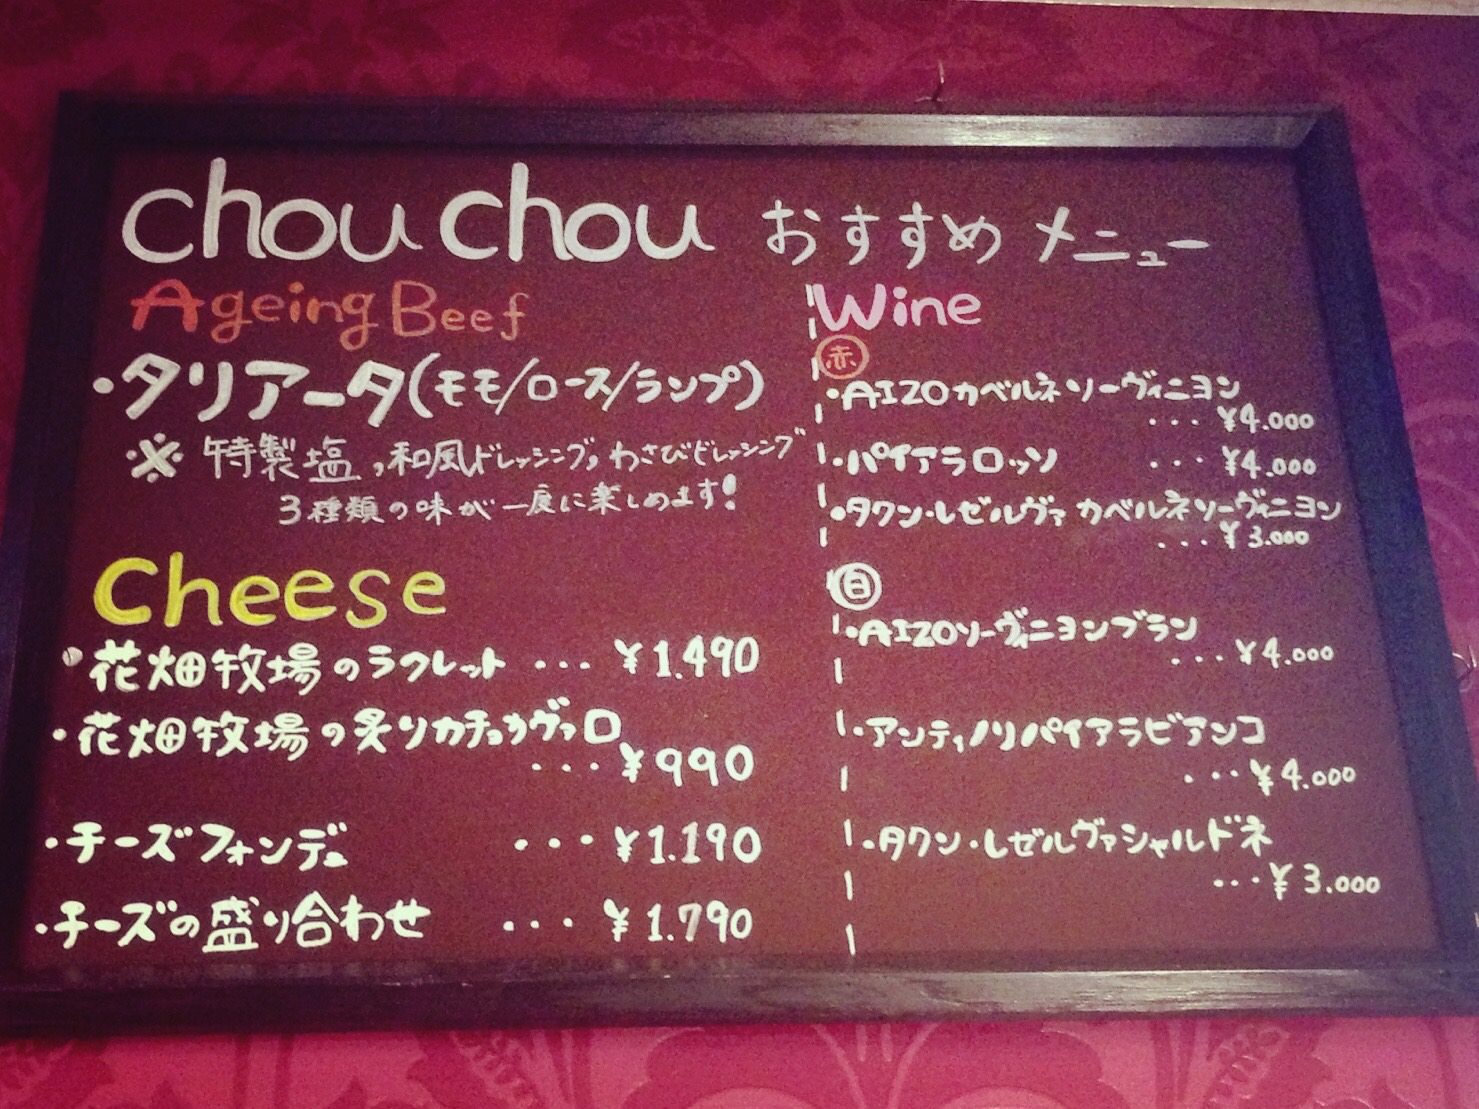 chou chou おすすめ メニュー
Ageing Beef
・タリアータ(モモ/ロース/ランプ)
※ 特製塩,和風ドレッシング,わさびドレッシング
3種類の味が一度に楽しめます!
Cheese
・花畑牧場のラクレット ... ¥1.490
・花畑牧場の炙りカチョカヴァロ
... ¥990
・チーズフォンデュ ... ¥1.190
・チーズの盛り合わせ ... ¥1.790
Wine
赤
・AIZOカベルネソーヴィニヨン
... ¥4.000
・パイアラロッソ ... ¥4.000
・タクン・レゼルヴァ カベルネソーヴィニヨン
... ¥3.000
白
・AIZOソーヴィニヨンブラン
... ¥4.000
・アンティノリパイアラビアンコ
... ¥4.000
・タクン・レゼルヴァシャルドネ
... ¥3.000